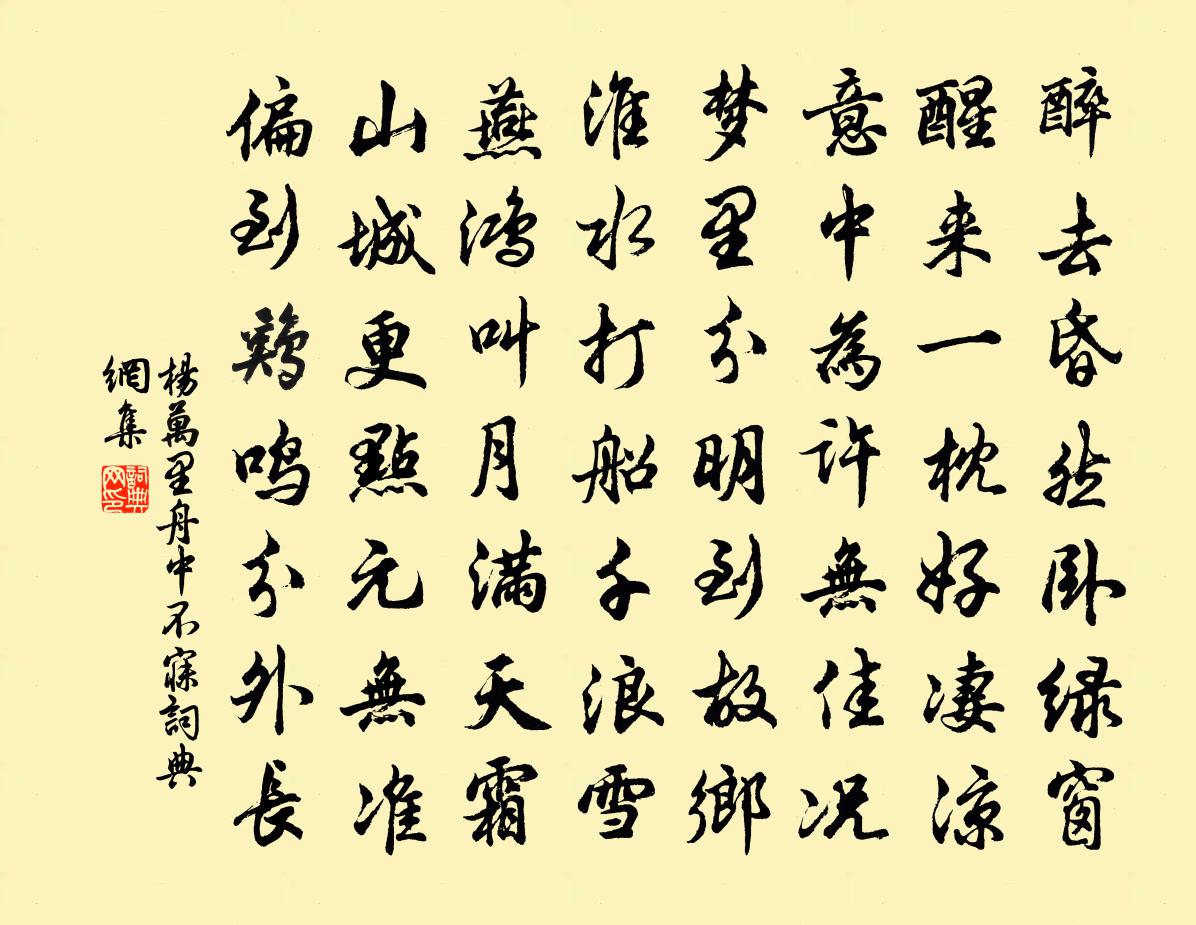 醉去昏然卧绿窗
醒来一枕好凄凉
意中為许無佳况
梦里分明到故鄉
淮水打船千浪雪
燕鸿叫月满天霜
山城更點元無准
偏到鸡鸣分外長
楊萬里舟中不寐詞典
網集
詞典
网印